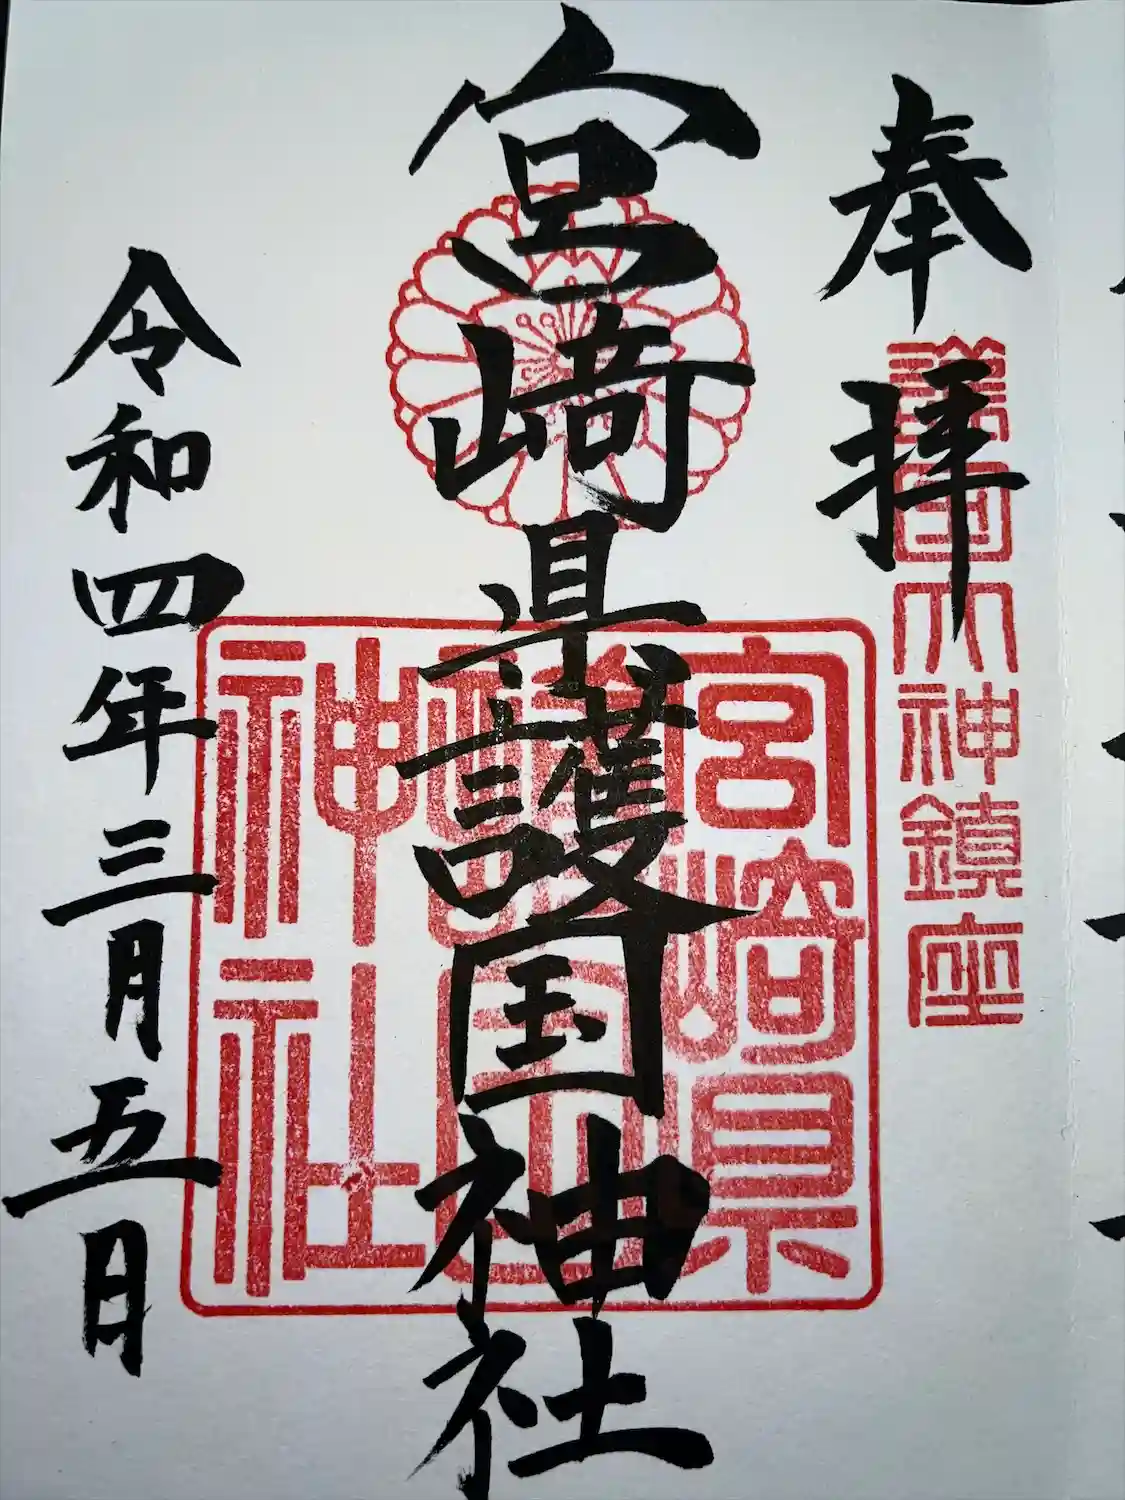 奉拝
護国大神鎮座
宮﨑県護国神社
宮崎県
護国
神社
令和四年三月五日